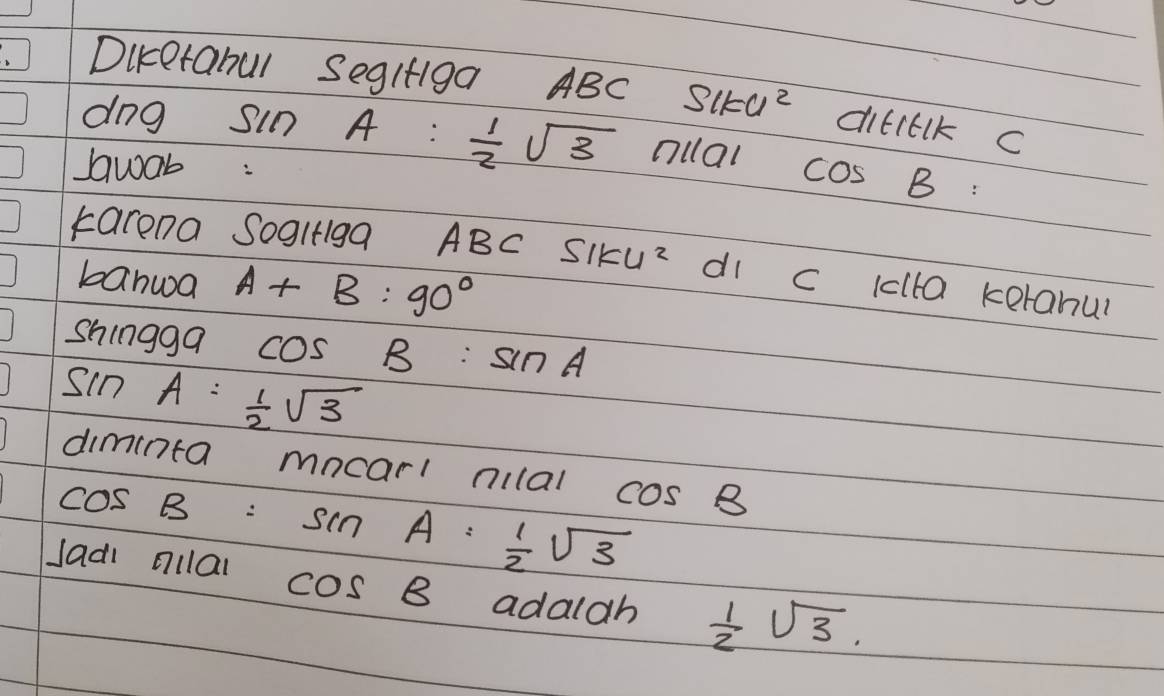 Diketahui segitiga ABC siku² dititik C
dng sin A : 1/2 √3 nilai cos B :
Jawab :
karena segitiga ABC siku² di C kita ketahui
bahwa A + B : 90°
shingga cos B : sin A
sin A : 1/2 √3
diminta mncari nilai cos B
cos B : sin A : 1/2 √3
Jadi nilai cos B adalah 1/2 √3.